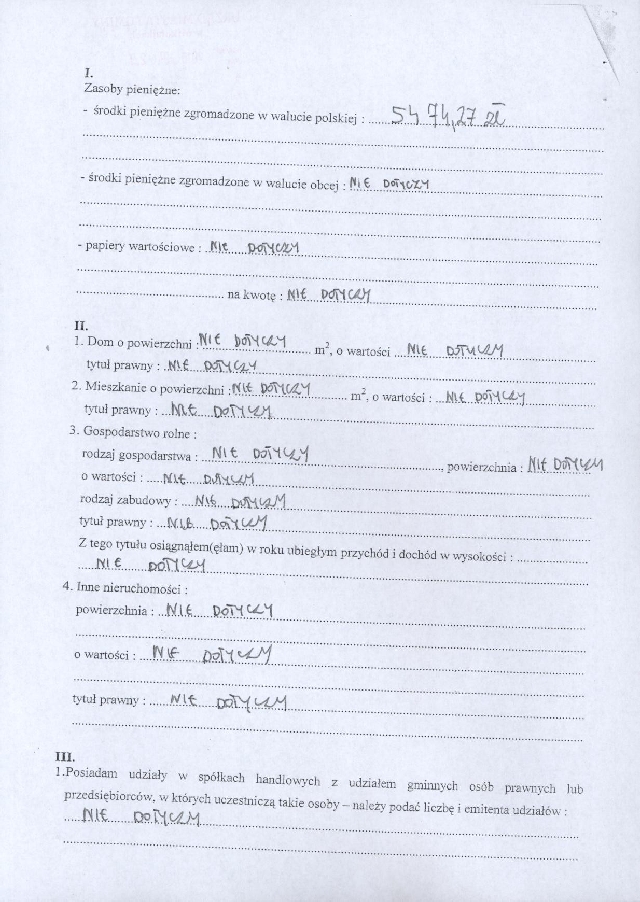 I.
Zasoby pieniężne:
- środki pieniężne zgromadzone w walucie polskiej : ...... 5474,27 zł
- środki pieniężne zgromadzone w walucie obcej : NIE DOTYCZY
- papiery wartościowe : NIE DOTYCZY
na kwotę : NIE DOTYCZY
II.
1. Dom o powierzchni : NIE DOTYCZY m², o wartości NIE DOTYCZY
tytuł prawny : NIE DOTYCZY
2. Mieszkanie o powierzchni : NIE DOTYCZY m², o wartości : NIE DOTYCZY
tytuł prawny : NIE DOTYCZY
3. Gospodarstwo rolne :
rodzaj gospodarstwa : NIE DOTYCZY, powierzchnia : NIE DOTYCZY
o wartości : NIE DOTYCZY
rodzaj zabudowy : NIE DOTYCZY
tytuł prawny : NIE DOTYCZY
Z tego tytułu osiągnąłem(ęłam) w roku ubiegłym przychód i dochód w wysokości :
NIE DOTYCZY
4. Inne nieruchomości :
powierzchnia : NIE DOTYCZY
o wartości : NIE DOTYCZY
tytuł prawny : NIE DOTYCZY
III.
1.Posiadam udziały w spółkach handlowych z udziałem gminnych osób prawnych lub
przedsiębiorców, w których uczestniczą takie osoby – należy podać liczbę i emitenta udziałów :
NIE DOTYCZY